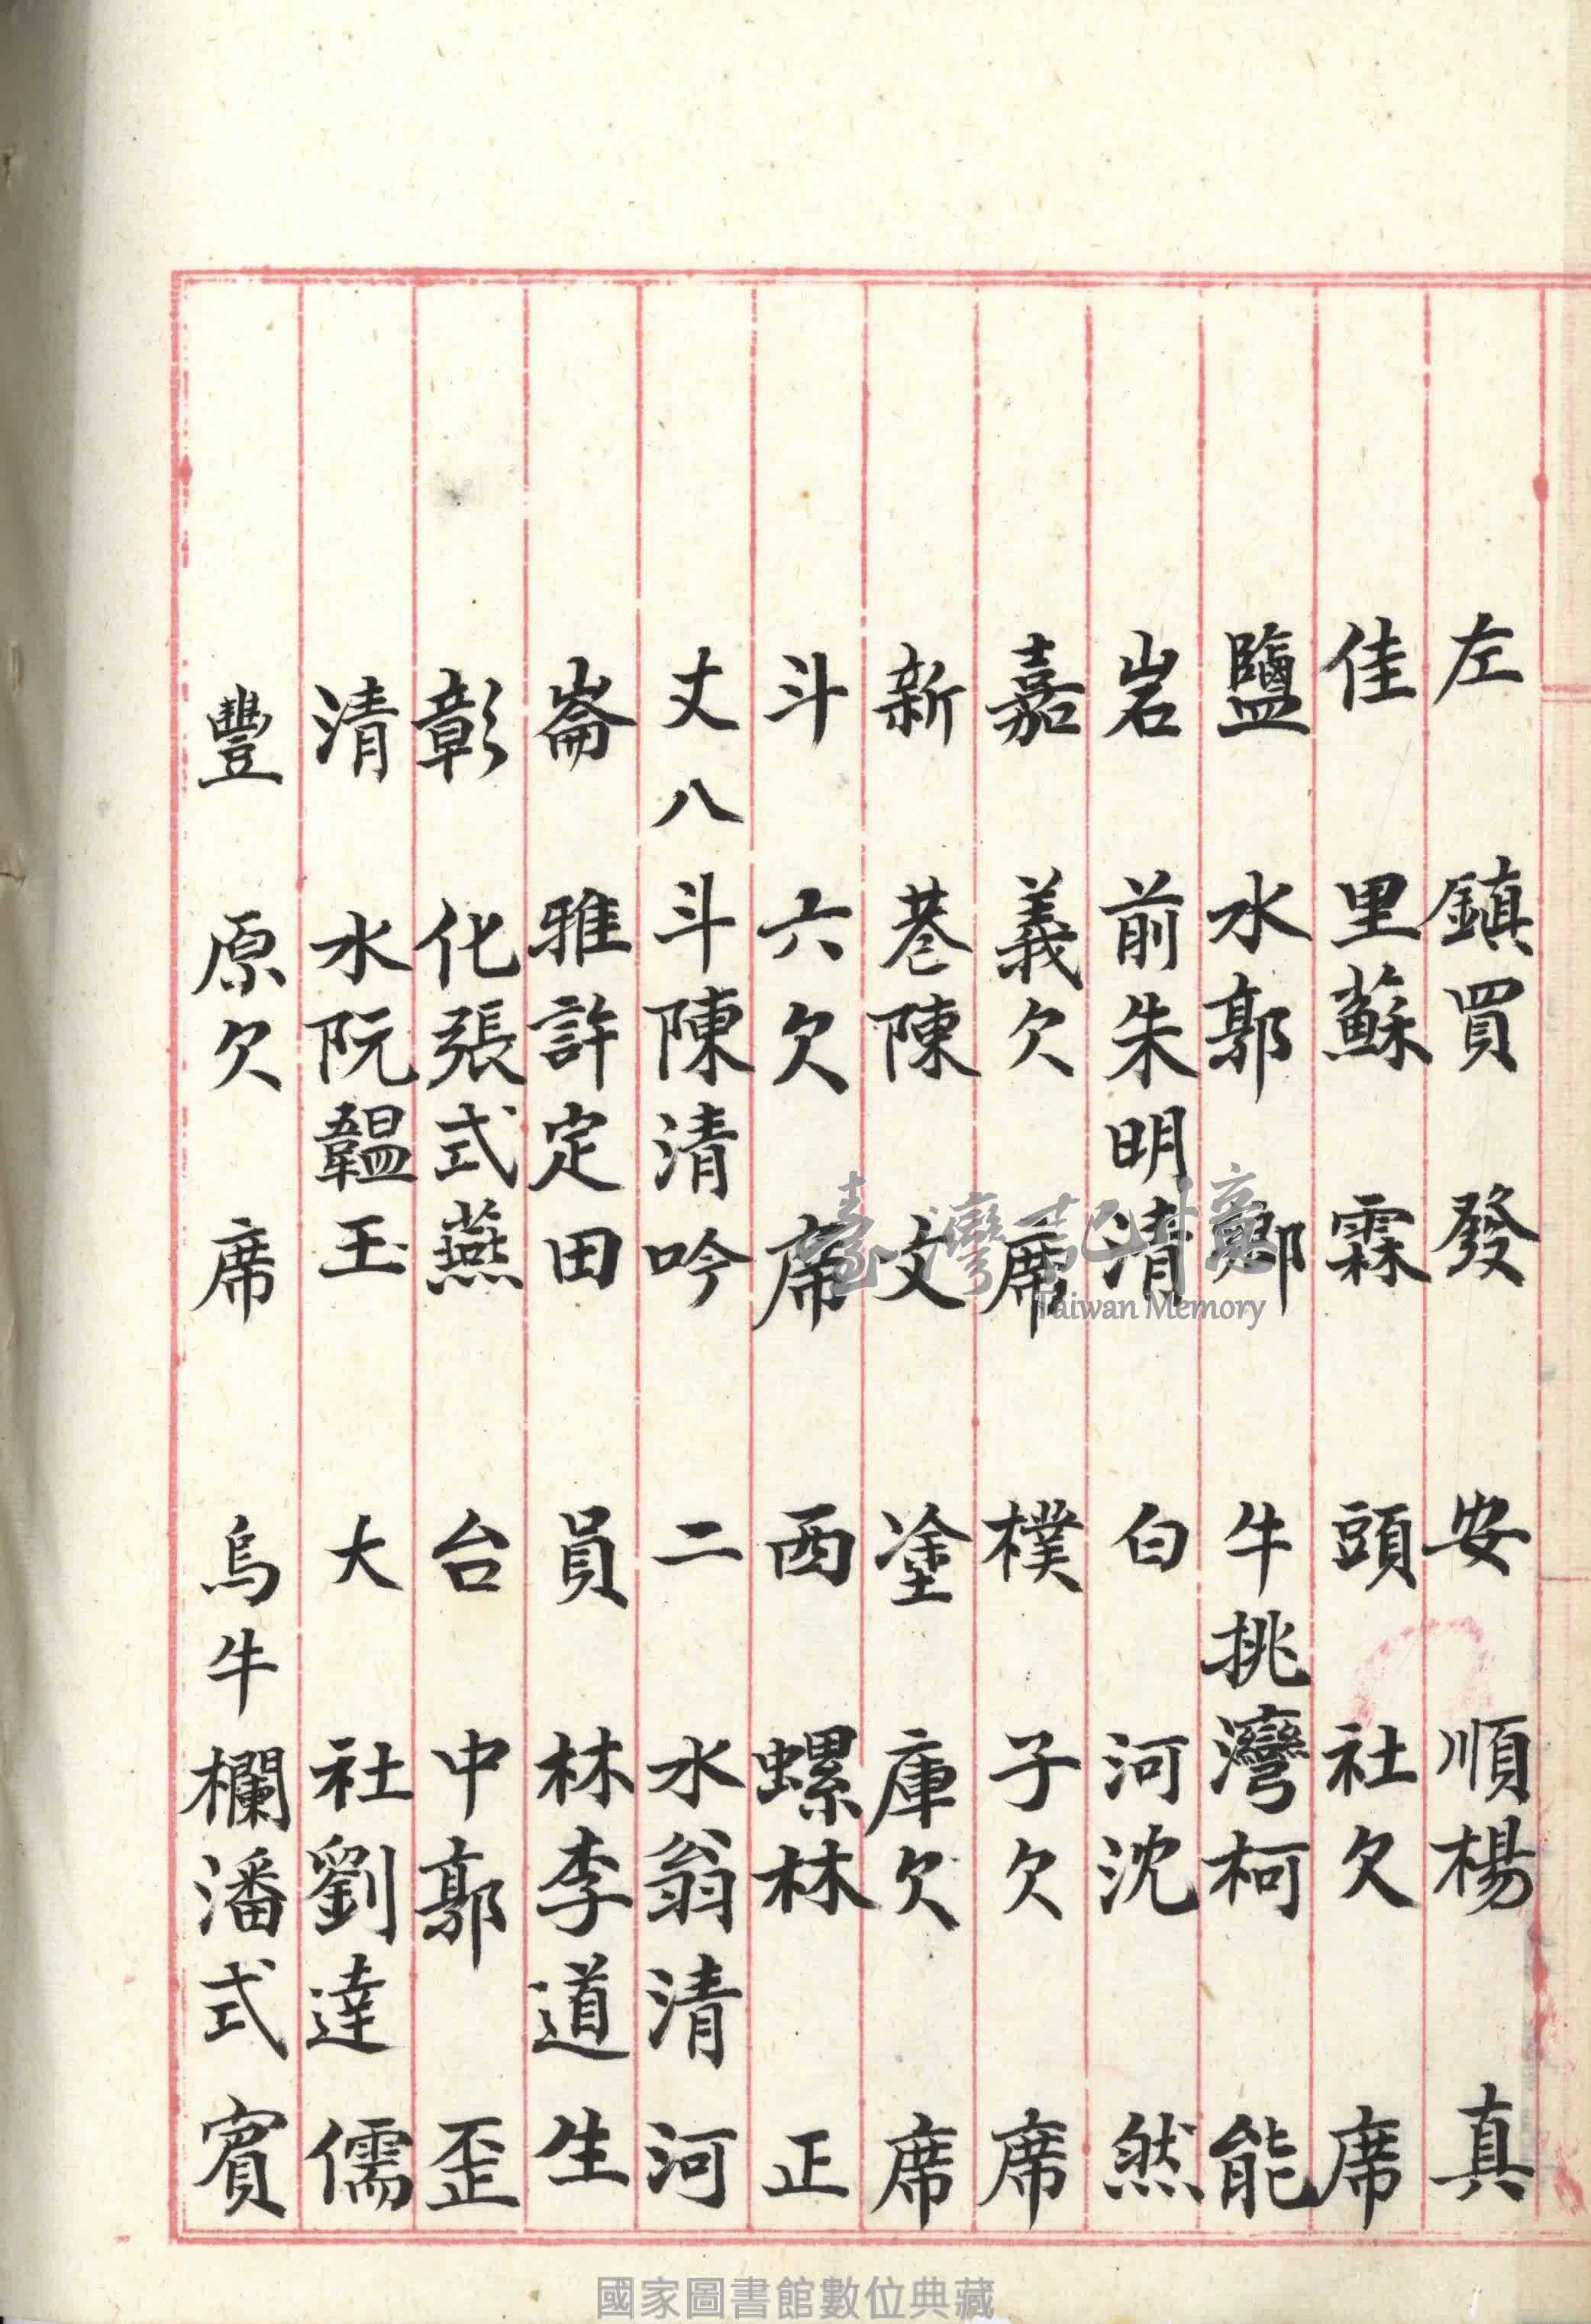 左鎮買發 安順楊真
佳里蘇霖 頭社欠席
鹽水郭鄉 牛挑灣柯能
岩前朱明清 白河沈然
嘉義欠席 樸子欠席
新巷陳文 塗庫欠席
斗六欠席 西螺林正
丈八斗陳清吟 二水翁清河
崙雅許定田 員林李道生
彰化張式燕 台中郭歪
清水阮韞玉 大社劉達儒
豐原欠席 烏牛欄潘式賓
臺灣記憶
Taiwan Memory
國家圖書館數位典藏